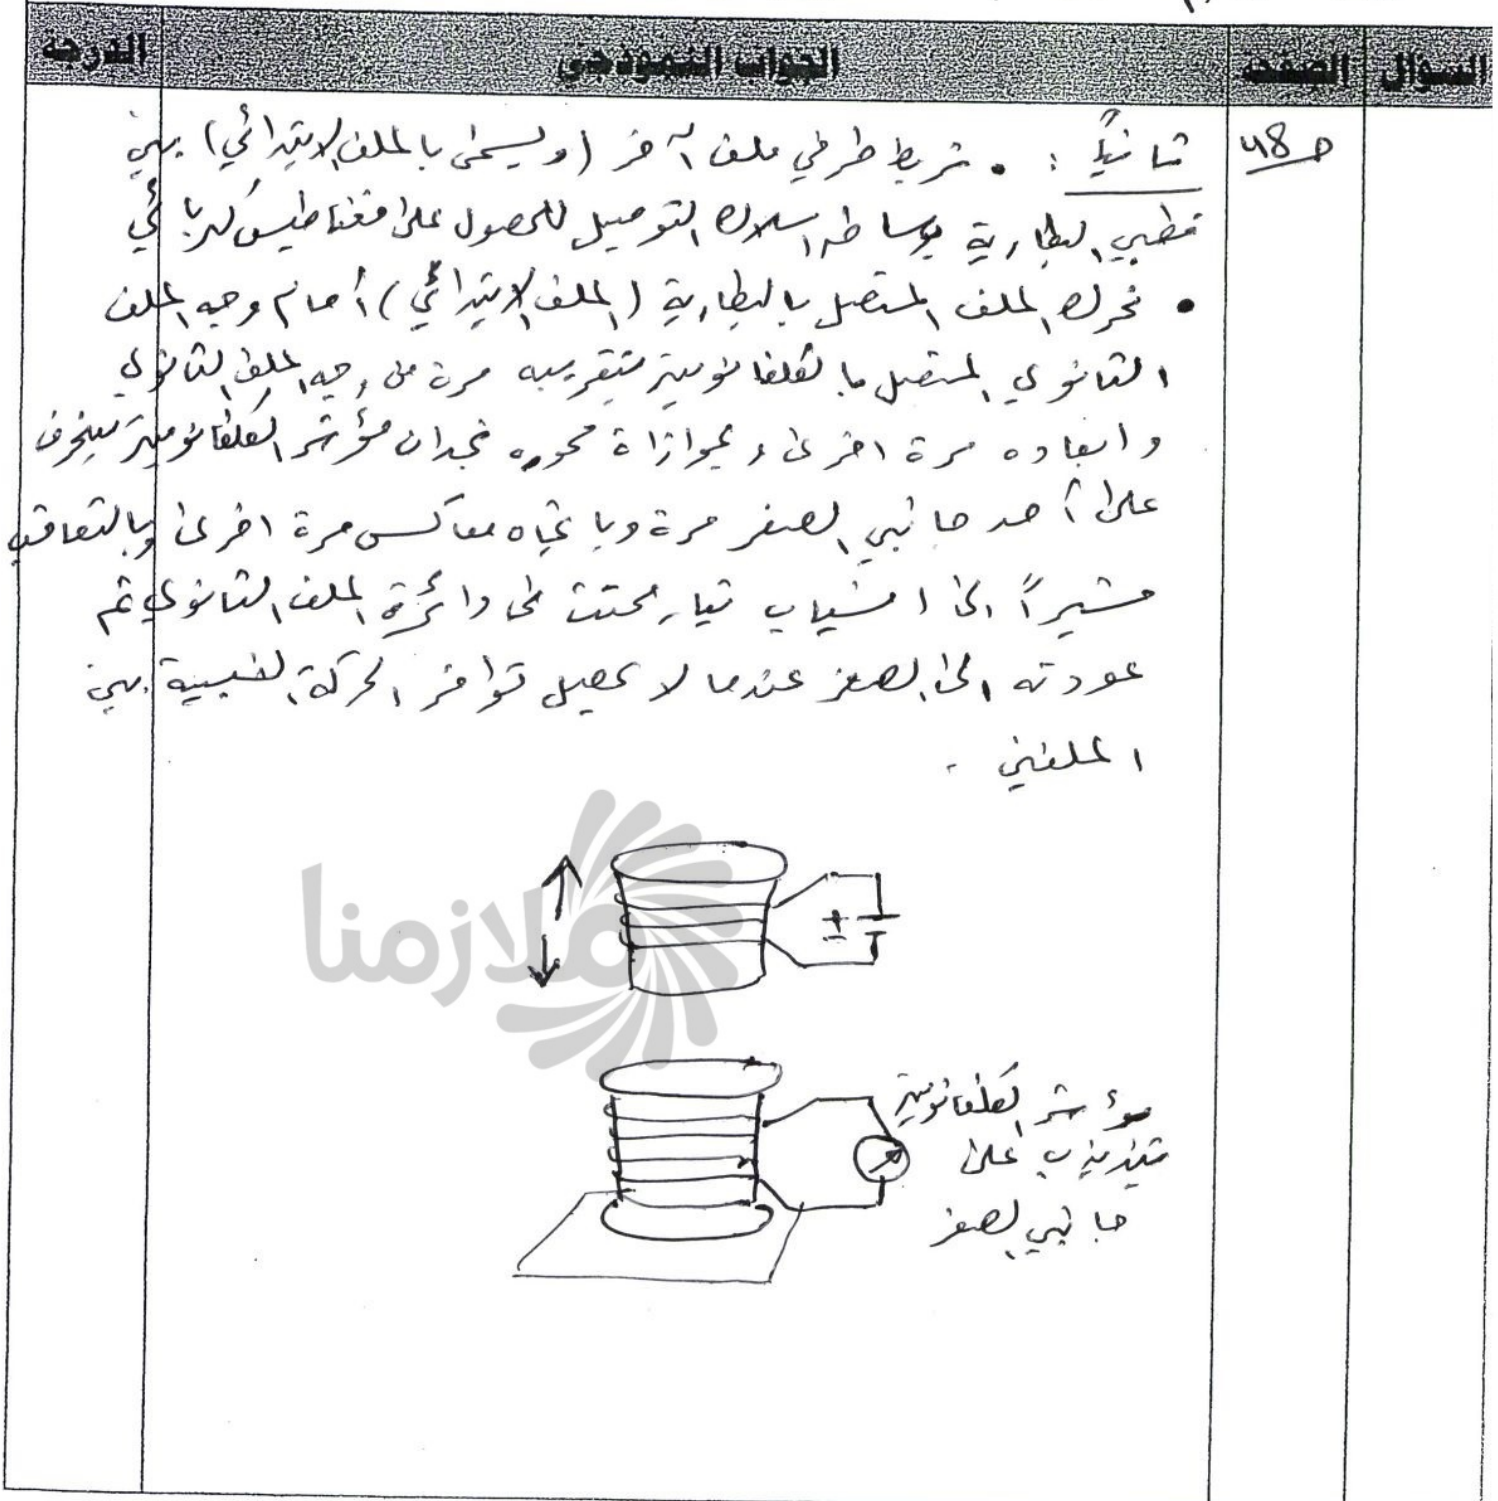 السؤال الصفحة الجواب النموذجي الدرجة
ص48 ثانياً : • نربط طرفي ملف آخر (ويسمى بالملف الابتدائي) بين
قطبي البطارية بوساطة اسلاك التوصيل للحصول على مغناطيس كهربائي
• نحرك الملف المتصل بالبطارية (الملف الابتدائي) أمام وجه الملف
الثانوي المتصل بالكلفانوميتر بتقريبه مرة من وجه الملف الثانوي
وابعاده مرة اخرى وبموازاة محوره نجد ان مؤشر الكلفانوميتر ينحرف
على أحد جانبي الصفر مرة وباتجاه معاكس مرة اخرى وبالتعاقب
مشيراً الى انسياب تيار محتث في دائرة الملف الثانوي ثم
عودته الى الصفر عندما لا يحصل توافر الحركة النسبية بين
الملفين .
ملازمنا
+
مؤشر الكلفانوميتر
يتذبذب على
جانبي الصفر